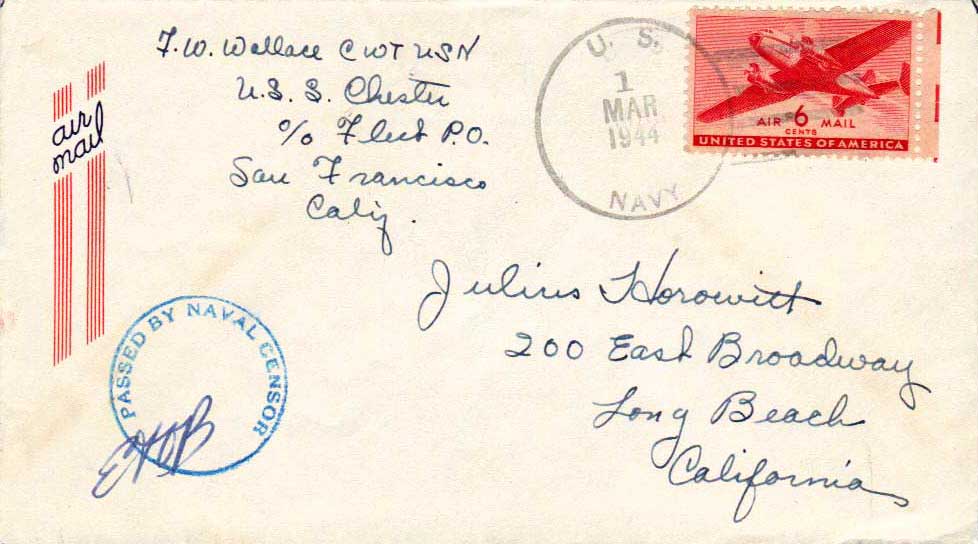 F. W. Wallace CWT USN
U.S.S. Chester
c/o Fleet P.O.
San Francisco
Calif.
air
mail
U. S.
1
MAR
1944
NAVY
AIR 6 MAIL
CENTS
UNITED STATES OF AMERICA
Julius Horowitt
200 East Broadway
Long Beach
California
PASSED BY NAVAL CENSOR